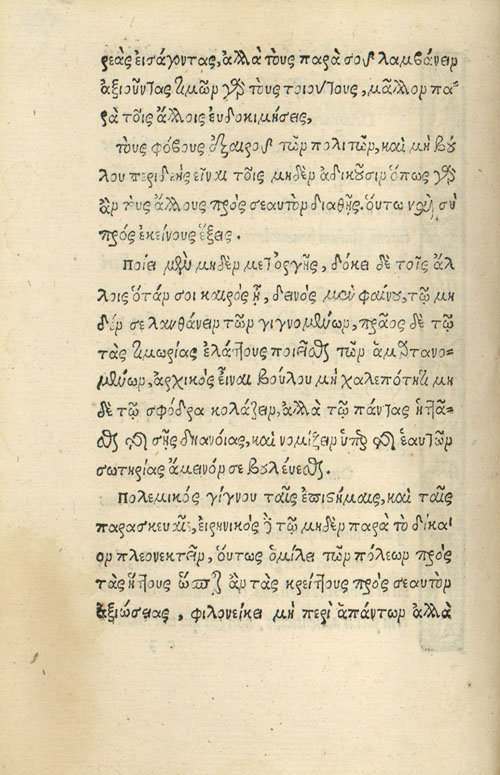 ρεὰς εἰσάγοντας, ἀλλὰ τοὺς παρὰ σοῦ λαμβάνειν
ἀξιοῦντας τιμῶν γὰρ τοὺς τοιούτους, μᾶλλον πα-
ρὰ τοῖς ἄλλοις εὐδοκιμήσεις,
τοὺς φόβους ἐξαίρου τῶν πολιτῶν, καὶ μὴ βού
λου περιδεεῖς εἶναι τοῖς μηδὲν ἀδικοῦσιν ὅπως γὰρ
ἂν τοὺς ἄλλους πρὸς σεαυτὸν διαθῇς. οὕτω καὶ σὺ
πρὸς ἐκείνους ἕξεις.
Ποίει μὲν μηδὲν μετ' ὀργῆς, δόκει δὲ τοῖς ἄλ
λοις ὅτάν σοι καιρὸς ᾖ, δεινὸς μὲν φαίνου, τῷ μη
δέν σε λανθάνειν τῶν γιγνομένων, πρᾶος δὲ τῷ
τὰς τιμωρίας ἐλάττους ποιεῖσθαι τῶν ἁμαρτανο-
μένων, ἀρχικὸς εἶναι βούλου μὴ χαλεπότητι μη
δὲ τῷ σφόδρα κολάζειν, ἀλλὰ τῷ πάντας ἡττᾶ-
σθαι τῆς σῆς διανοίας, καὶ νομίζειν ὑπὲρ τῆς ἑαυτῶν
σωτηρίας ἄμεινόν σε βουλεύεσθαι.
Πολεμικὸς γίγνου ταῖς ἐπιστήμαις, καὶ ταῖς
παρασκευαῖς, εἰρηνικὸς δὲ τῷ μηδὲν παρὰ τὸ δίκαι
ον πλεονεκτεῖν, οὕτως ὁμίλει τῶν πόλεων πρὸς
τὰς ἥττους ὥσπερ ἂν τὰς κρείττους πρὸς σεαυτὸν
ἀξιώσειας, φιλονείκει μὴ περὶ ἁπάντων ἀλλὰ